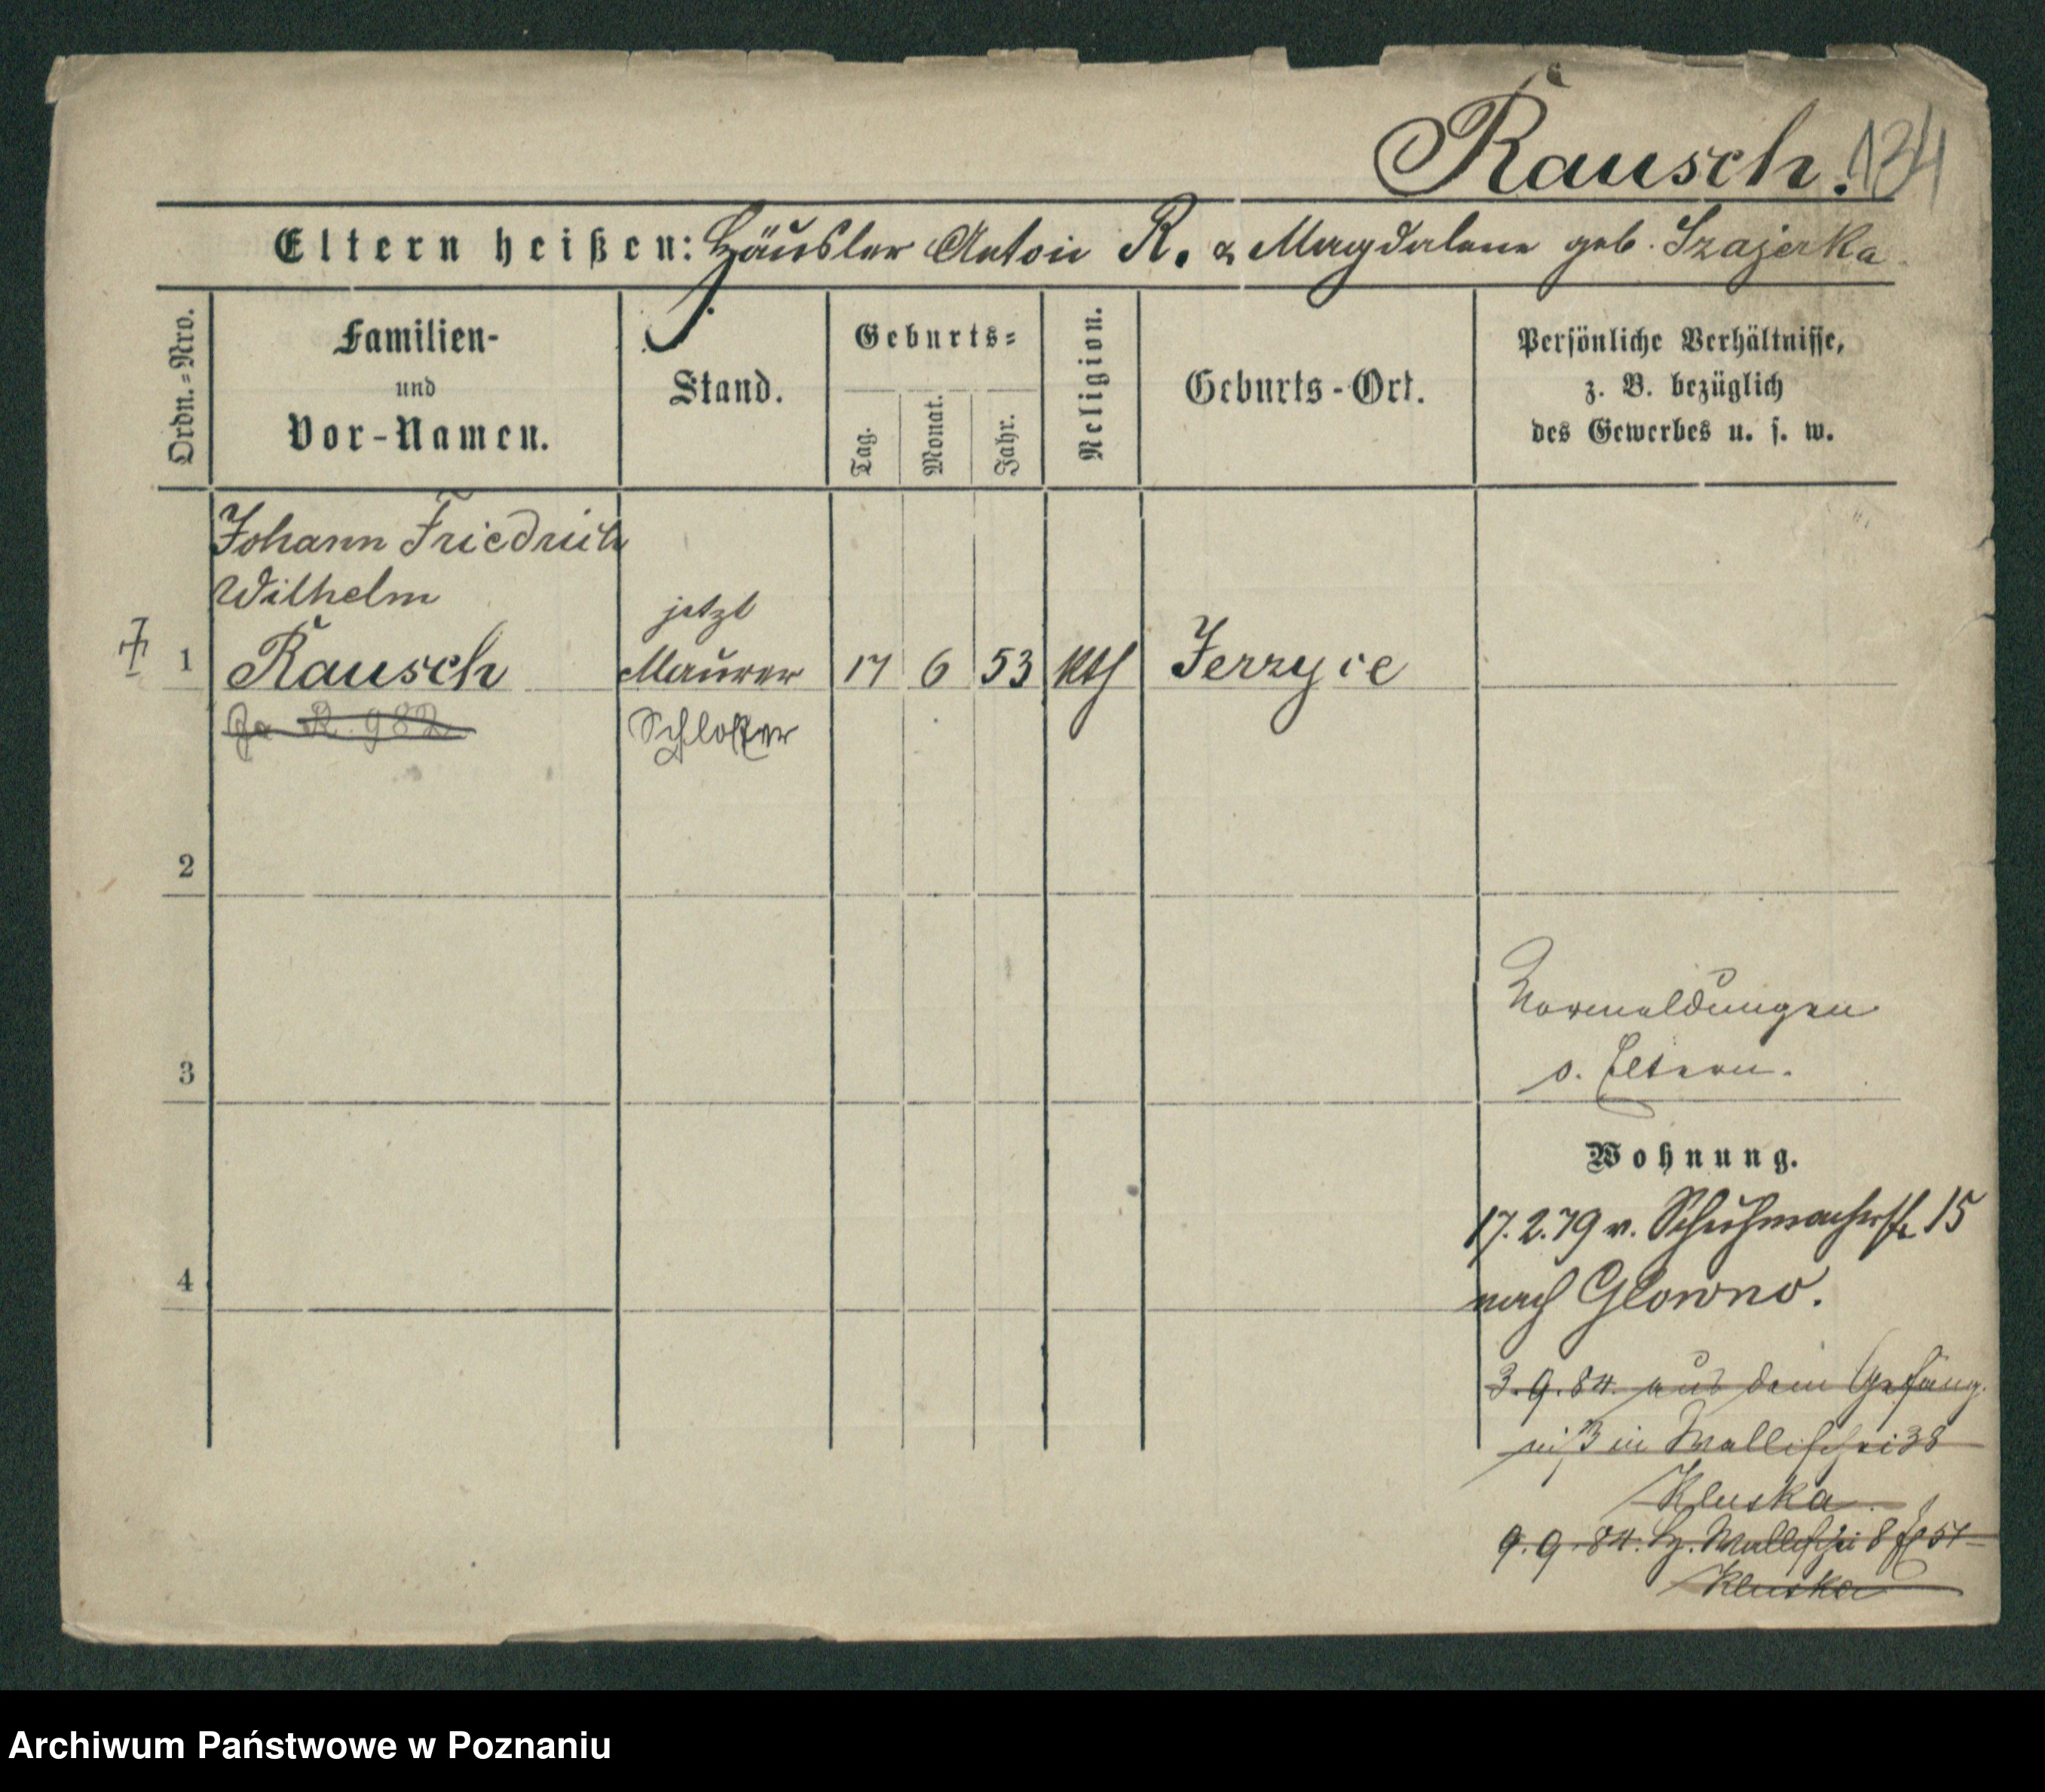 Rausch. 134
Eltern heißen: Häusler Anton R. & Magdalene geb. Szajerka.
Ordn.=Nro.
Familien-
und
Vor-Namen.
Stand.
Geburts=
Tag.
Monat.
Jahr.
Religion.
Geburts-Ort.
Persönliche Verhältnisse,
z. B. bezüglich
des Gewerbes u. s. w.
Johann Friedrich
Wilhelm
jetzt
1 Rausch Maurer 17 6 53 kth Jerzyce
R. 982 Schlosser
2
Vormeldungen
s. Eltern.
3
Wohnung.
17.2.79 v. Schuhmacherstr. 15
nach Glowno.
4
3.9.84. aus dem Gefäng-
niß in Wallischei 38
Kluska.
9.9.84. Wallischei 8
Kluska
Archiwum Państwowe w Poznaniu